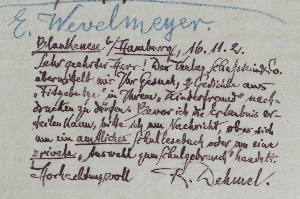 E. Wevelmeyer.
Blankenese b/Hamburg, 16.11.2.
Sehr geehrter Herr! Der Insel
übermittelt mir Ihr Gesuch, 2 Gedichte aus
„Fitzebutze" in Ihrem „Kinderfreund" nach-
drucken zu dürfen. Bevor ich die Erlaubnis er-
teilen kann, bitte ich um Nachricht, ob es sich
um ein amtliches Schullesebuch oder um eine
private „Auswahl zum Schulgebrauch" handelt.
Hochachtungsvoll R. Dehmel.